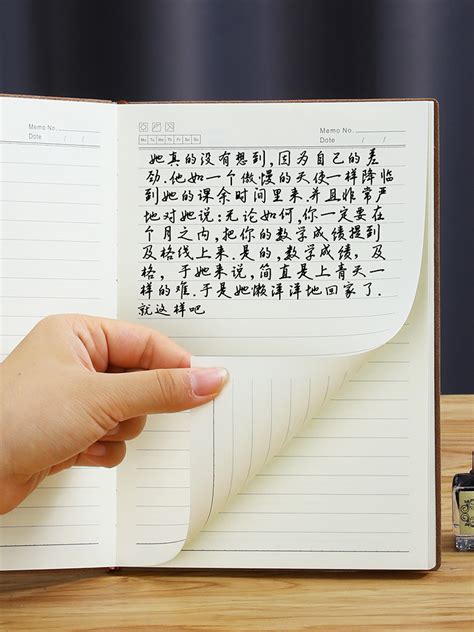 Memo No.
Date / /
Mo Tu We Th Fr Sa Su
Memo No.
Date / /
她真的没有想到,因为自己的差
劲.他如一个傲慢的天使一样降临
到她的课余时间里来.并且非常严
地对她说:无论如何,你一定要在
个月之内,把你的数学成绩提到
及格线上来.是的,数学成绩,及
格,于她来说,简直是上青天一
样的难.于是她懒洋洋地回家了.
就这样吧